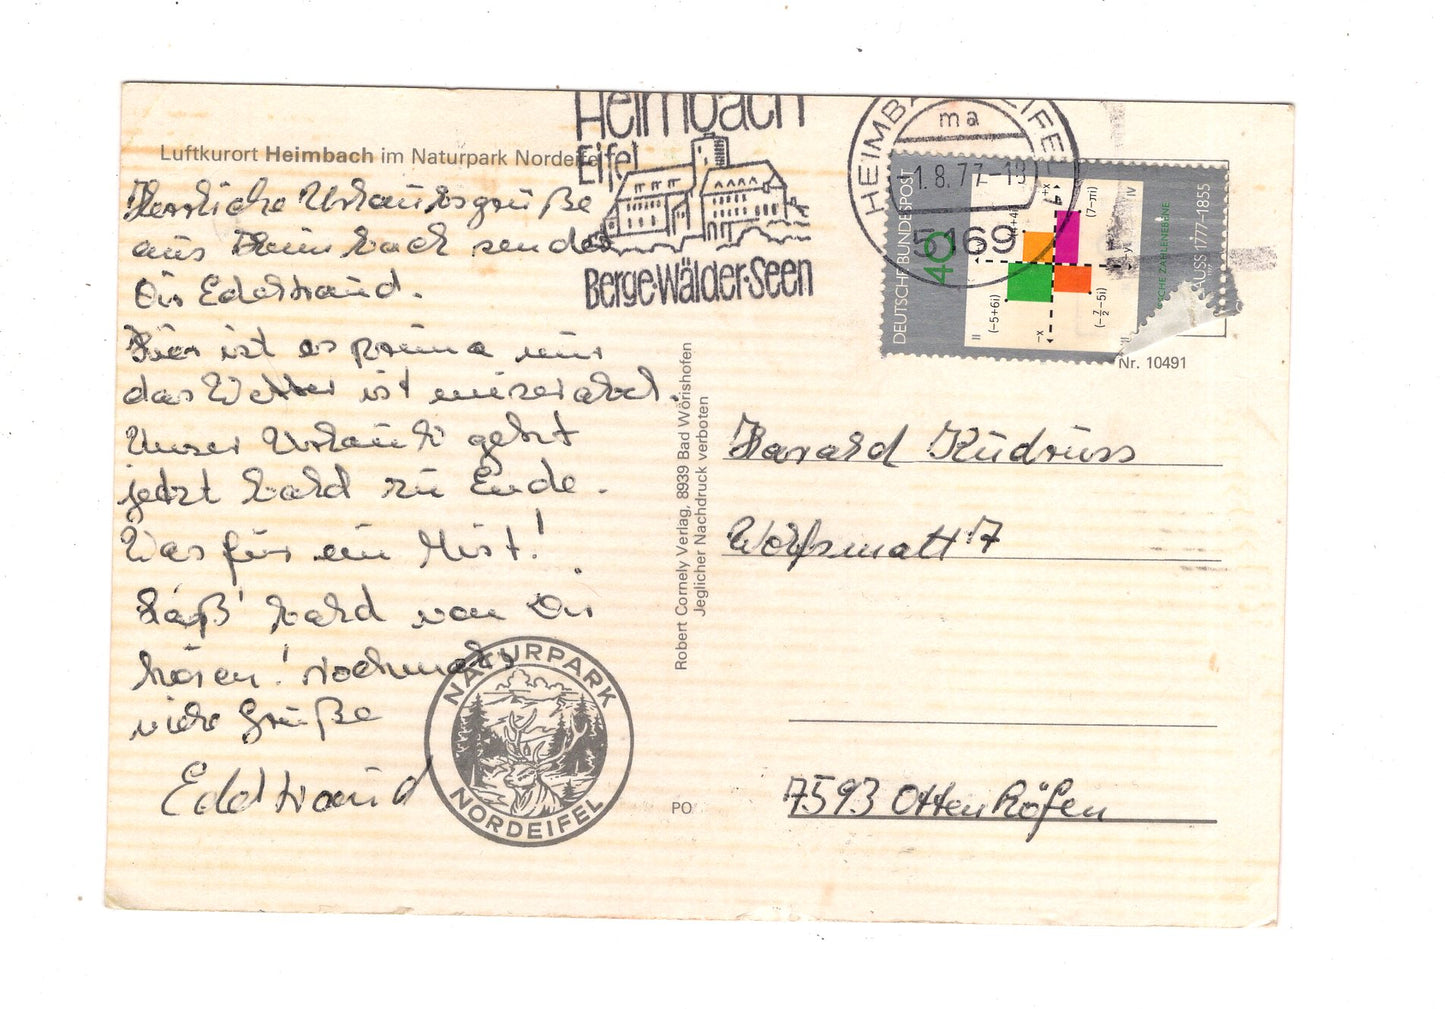 Luftkurort Heimbach im Naturpark Nordeifel
Herzliche Urlaubsgrüße
aus Heimbach sendet
Dir Edeltraud.
Hier ist es prima nur
das Wetter ist miserabel.
Unser Urlaub geht
jetzt bald zu Ende.
Was für ein Mist!
Laß' bald von Dir
hören! Nochmals
viele Grüße
Edeltraud
Heimbach
Eifel
Berge·Wälder·Seen
HEIMBACH EIFEL
ma
-1.8.77-18
5169
DEUTSCHE BUNDESPOST
40
(-5+6i)
(7-πi)
(-7/2-5i)
-x
+x
-y
II
IV
ZAHLENEBENE
GAUSS 1777-1855
Nr. 10491
Robert Cornely Verlag, 8939 Bad Wörishofen
Jeglicher Nachdruck verboten
Harald Küdruss
Wolfsmatt 7
7593 Ottenhöfen
NATURPARK
NORDEIFEL
PO